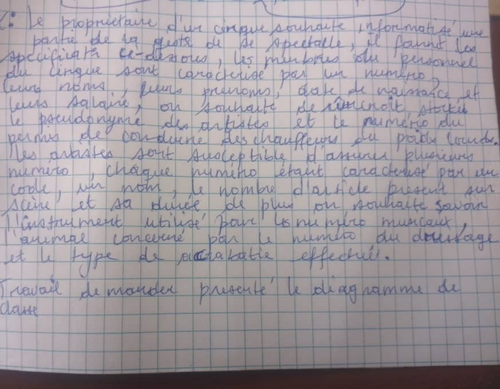 2: Le proprietaire d'un cirque souhaite informatisé une
partie de la geste de se spectalle, il fournit les
specificati ce-dessous, les membres du personnel
du cirque sont caracterise par un numéro,
leurs noms, leurs prenoms, date de naissance et
leurs salaire, on souhaite de
le pseudonyme des artistes et le numéro du
permis de conduire des chauffeurs du poids lourds.
Les artistes sont susceptible d'assurer plusieurs
numéro, chaque numéro étant caracterisé par un
code, un nom, le nombre d'article present sur
scène, et sa durée de plus on souhaite savoir
l'instrument utilisé par les numéro musicaux,
animae concerné par le numéro du dressage
et le type de acrobatie effectué.
Travail demander presenté le diagramme de
classe